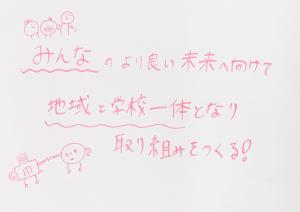 みんなのより良い未来へ向けて
地域と学校一体となり
取り組みをつくる!